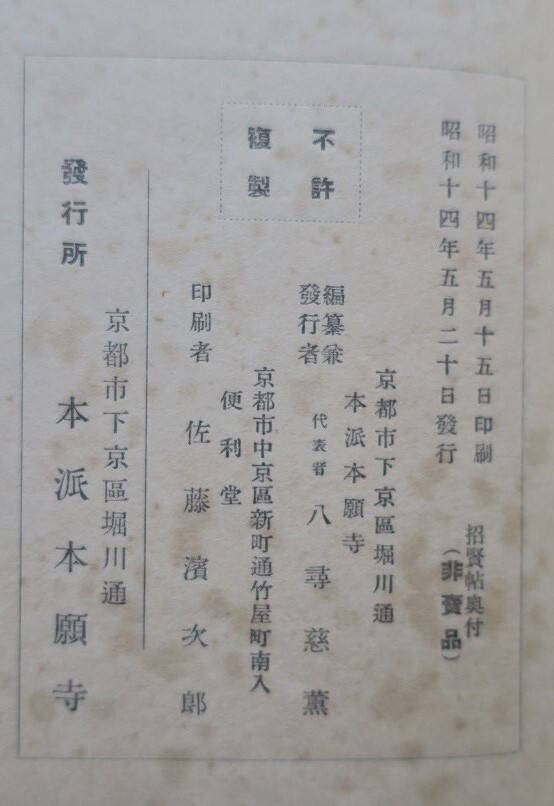 昭和十四年五月十五日印刷
昭和十四年五月二十日發行
招賢帖奧付
(非賣品)
不許
複製
京都市下京區堀川通
本派本願寺
編纂兼
發行者
代表者 八尋慈薫
京都市中京區新町通竹屋町南入
便利堂
印刷者 佐藤濱次郎
京都市下京區堀川通
發行所 本派本願寺